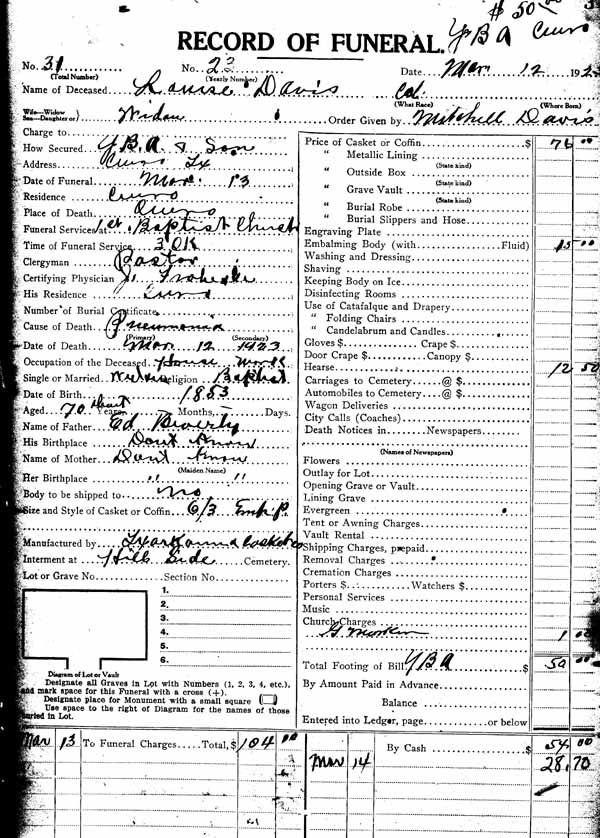 $ 50 00
RECORD OF FUNERAL. YBA Cuero
No. 31 No. 23 Date Mar 12 1923
(Total Number) (Yearly Number)
Name of Deceased Louise Davis Col.
(What Race) (Where Born)
Wife—Widow
Son—Daughter or) Widow Order Given by Mitchell Davis
Charge to
How Secured YBA & Son
Address Cuero Tx
Date of Funeral Mar. 13
Residence Cuero
Place of Death Cuero
Funeral Services at 1st Baptist Church
Time of Funeral Service 3 OK
Clergyman Pastor
Certifying Physician
His Residence Cuero
Number of Burial Certificate
Cause of Death Pneumonia
(Primary) (Secondary)
Date of Death Mar 12 1923
Occupation of the Deceased House work
Single or Married Widow Religion Baptist
Date of Birth 1853
Aged 70 Years Months Days.
Name of Father Ed Beverly
His Birthplace Dont Know
Name of Mother Dont Know
(Maiden Name)
Her Birthplace " "
Body to be shipped to no
Size and Style of Casket or Coffin 6/3 Emb. P.
Manufactured by Texarkanna Casket Co
Interment at Hill Side Cemetery.
Lot or Grave No. Section No.
1.
2.
3.
4.
5.
6.
Diagram of Lot or Vault
Designate all Graves in Lot with Numbers (1, 2, 3, 4, etc.),
and mark space for this Funeral with a cross (+).
Designate place for Monument with a small square
Use space to the right of Diagram for the names of those
buried in Lot.
Price of Casket or Coffin $ 76 00
" Metallic Lining
(State kind)
" Outside Box
(State kind)
" Grave Vault
(State kind)
" Burial Robe
" Burial Slippers and Hose
Engraving Plate
Embalming Body (with Fluid) 15 00
Washing and Dressing
Shaving
Keeping Body on Ice
Disinfecting Rooms
Use of Catafalque and Drapery
" Folding Chairs
" Candelabrum and Candles
Gloves $ Crape $
Door Crape $ Canopy $
Hearse 12 50
Carriages to Cemetery @ $
Automobiles to Cemetery @ $
Wagon Deliveries
City Calls (Coaches)
Death Notices in Newspapers
(Names of Newspapers)
Flowers
Outlay for Lot
Opening Grave or Vault
Lining Grave
Evergreen
Tent or Awning Charges
Vault Rental
Shipping Charges, prepaid
Removal Charges
Cremation Charges
Porters $ Watchers $
Personal Services
Music
Church Charges
1 00
Total Footing of Bill YBA $ 50 00
By Amount Paid in Advance
Balance
Entered into Ledger, page or below
Mar 13 To Funeral Charges Total, $ 104 00
By Cash $ 54 00
Mar 14 28.70